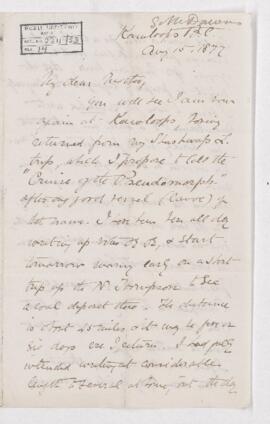 G. M. Dawson
Kamloops B.C.
Aug 15. 1877
My dear Mother,
You will see I am now
again at Kamloops, having
returned from my Shushwap L.
trip, which I propose to call the
"Cruise of the Pseudomorph"
after our good vessel (Canoe) of
that name. I have been here all day
writing up notes &c &c, & start
tomorrow morning early on a short
trip up the N. Thompson to see
a coal deposit there. The distance
is about 45 miles & it may be five or
six days ere I return. I had fully
intended writing at considerable
length to several at home, but the day